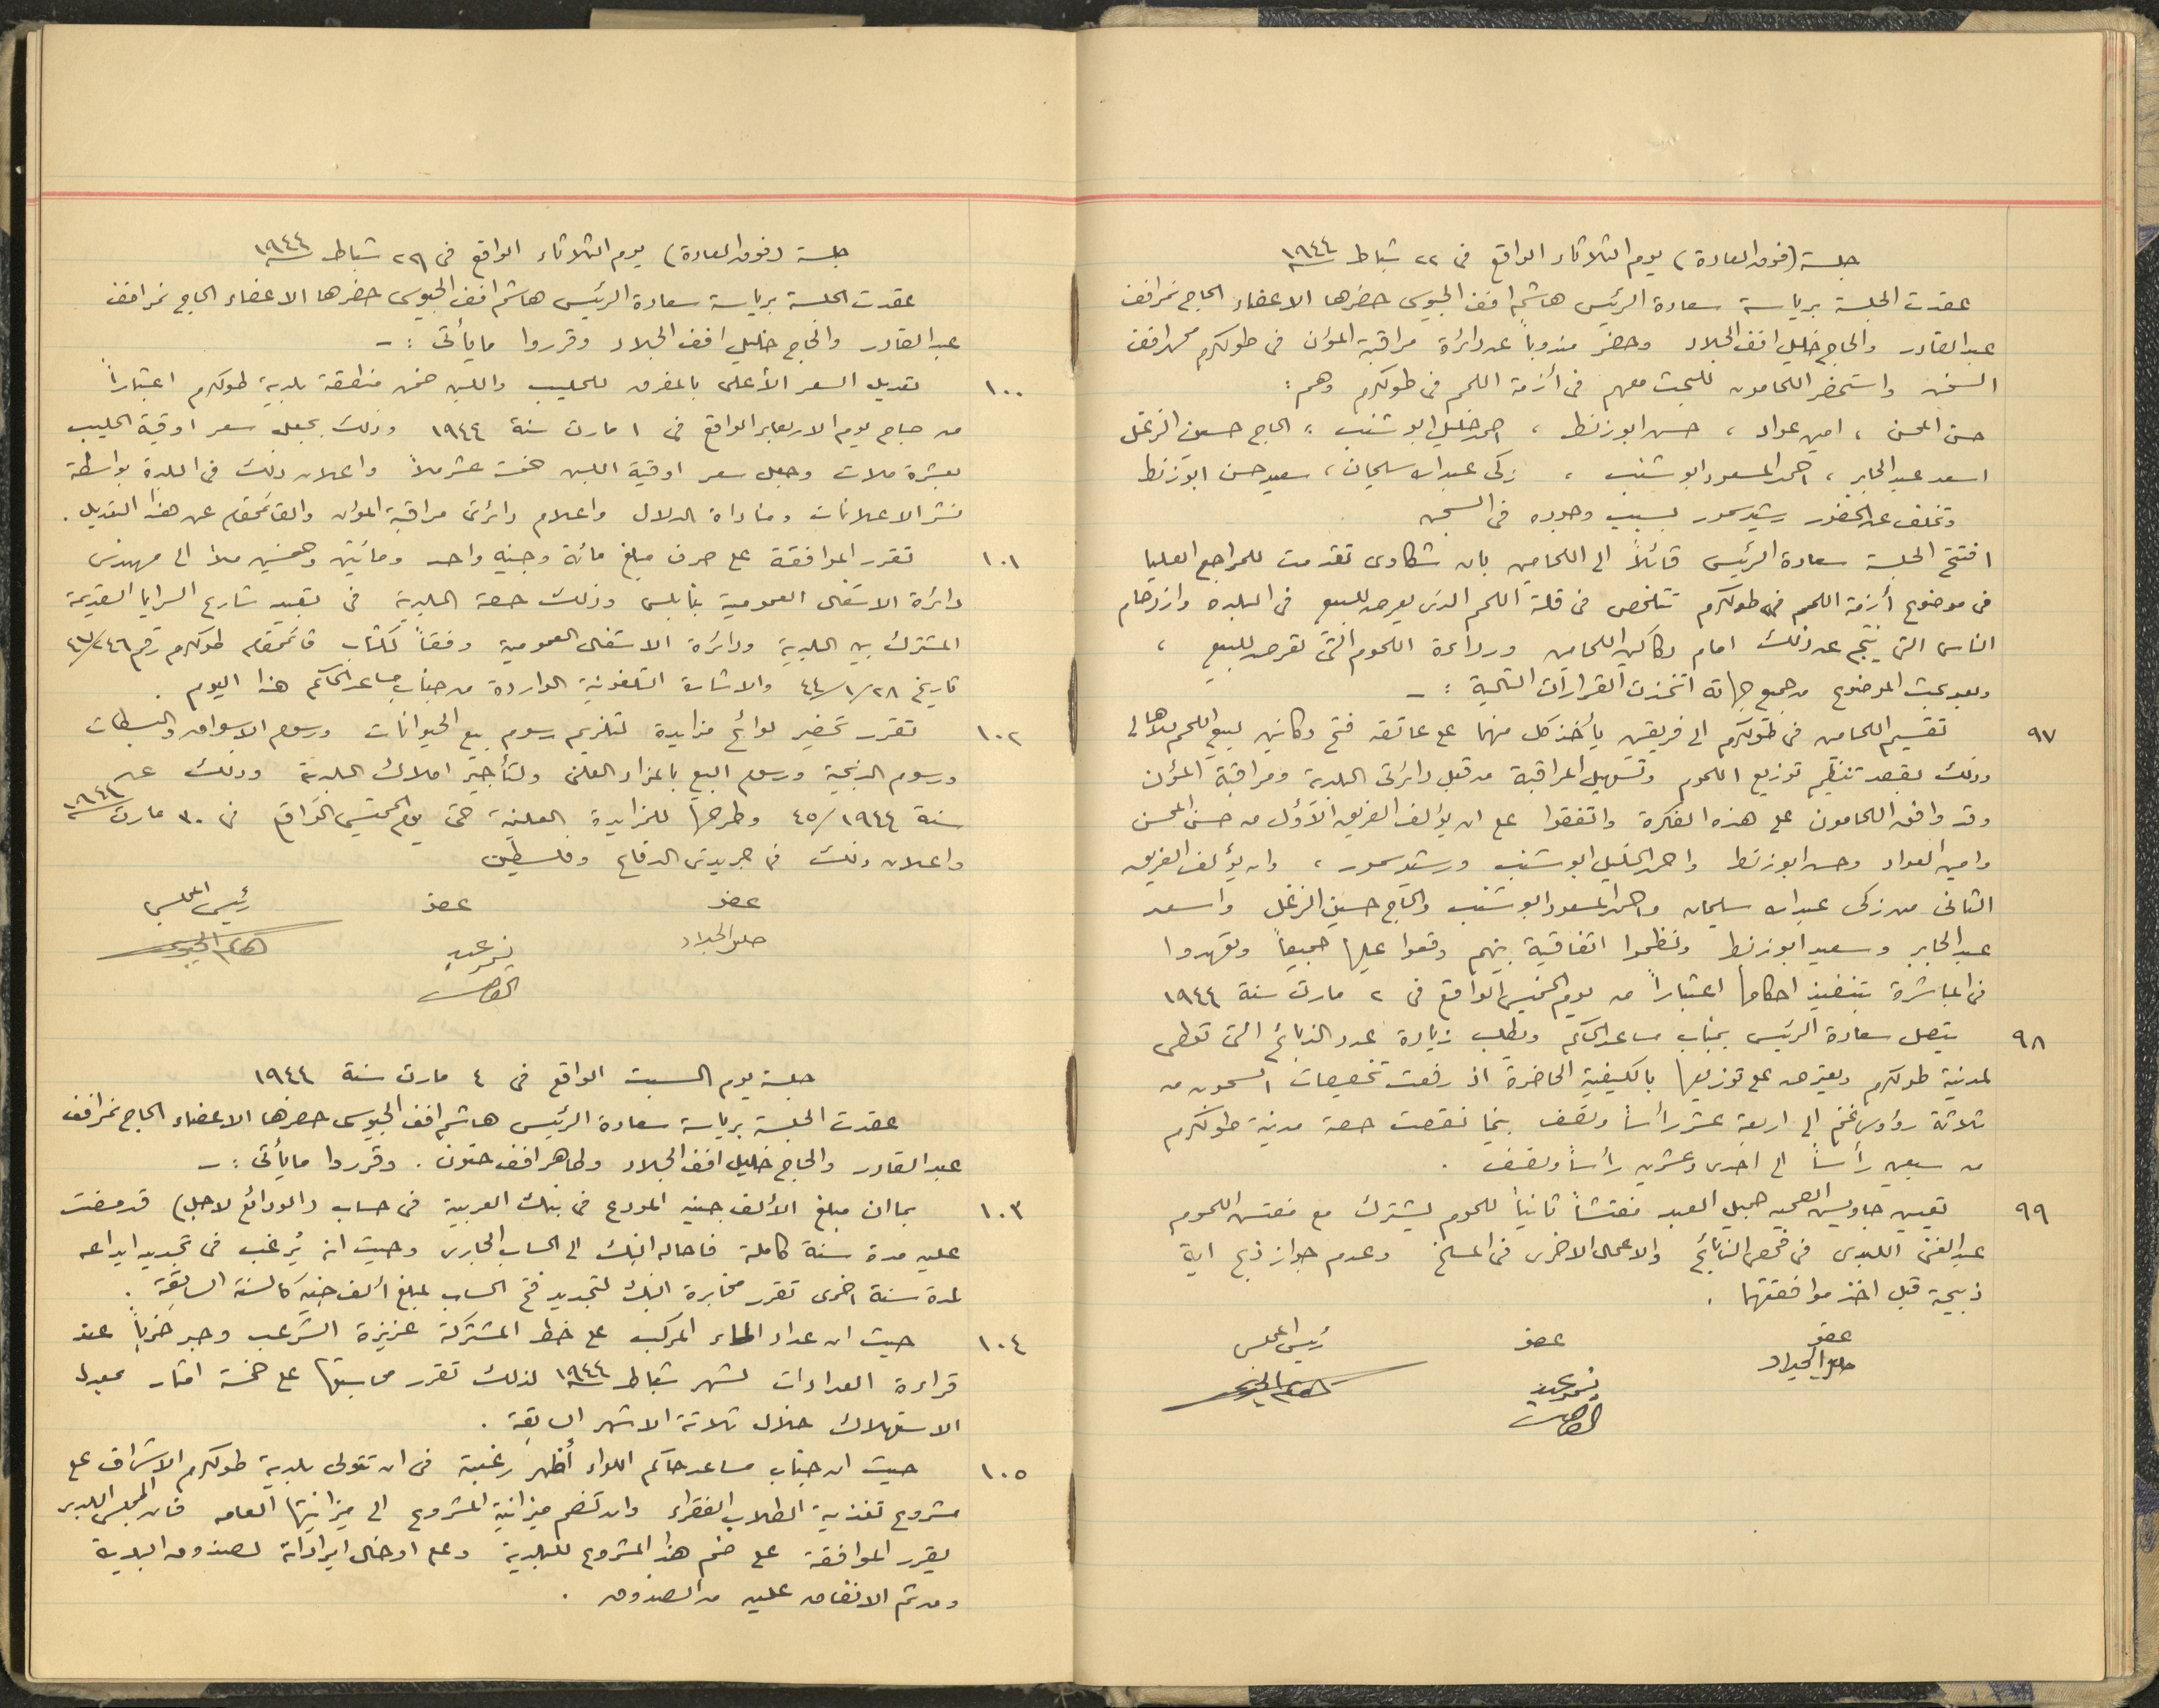 جلسة (فوق العادة) يوم الثلاثاء الواقع في ٢٢ شباط سنة ١٩٤٤
عقدت الجلسة برياسة سعادة الرئيس هاشم افندي الجيوسي حضرها الاعضاء الحاج نمر افندي
عبد القادر والحاج خليل افندي الجلاد وحضر مندوباً عن دائرة مراقبة المؤن في طولكرم محمد افندي
واستحضر اللحامون للبحث معهم في أزمة اللحم في طولكرم وهم :
حسن المحسن ، امين عواد ، حسن ابو زنط ، احمد خليل ابو شنب ، الحاج حسين الزغل
اسعد عبد الجابر ، احمد المسعود ابو شنب ، زكي عبد الله سليمان ، سعيد حسن ابو زنط
وتخلف عن الحضور رشيد سمور بسبب وجوده في السجن
افتتح الجلسة سعادة الرئيس قائلاً الى اللحامين بان شكاوى تقدمت للمراجع العليا
في موضوع أزمة اللحم في طولكرم تتلخص في قلة اللحم الذي يعرض للبيع في البلده وازدحام
الناس التي ينتج عن ذلك امام دكاكين اللحامين ورداءة اللحوم التي تعرض للبيع ،
وبعد بحث الموضوع من جميع جهاته اتخذت القرارات التالية : -
٩٧ تقسيم اللحامين في طولكرم الى فريقين يأخذ كل منهما على عاتقه فتح دكانين لبيع اللحم للاهالي
وذلك بقصد تنظيم توزيع اللحوم وتسهيل المراقبة من قبل دائرتي البلدية ومراقبة المؤن
وقد وافق اللحامون على هذه الفكرة واتفقوا على ان يؤلف الفريق الأول من حسن المحسن
وامين العواد وحسن ابو زنط واحمد الخليل ابو شنب ورشيد سمور ، وان يؤلف الفريق
الثاني من زكي عبد الله سليمان واحمد المسعود ابو شنب والحاج حسين الزغل واسعد
عبد الجابر وسعيد ابو زنط ونظموا اتفاقية بينهم وقعوا عليها جميعاً وتعهدوا
في المباشرة بتنفيذ احكامها اعتباراً من يوم الخميس الواقع في ٢ مارت سنة ١٩٤٤
٩٨ يتصل سعادة الرئيس بجناب مساعد الحاكم ويطلب زيادة عدد الذبائح التي تعطى
لمدينة طولكرم ويعترض على توزيعها بالكيفية الحاضرة اذ رفعت تخصيصات السجون من
ثلاثة رؤوس غنم الى اربعة عشر رأساً ونصف بينما نقصت حصة مدينة طولكرم
من سبعين رأساً الى احدى وعشرين رأساً ونصف .
٩٩ تعيين جاويش الصحيه جميل العبد مفتشاً ثانياً للحوم يشترك مع مفتش اللحوم
عبد الغني اللبدي في فحص الذبائح والاعمال الاخرى في المسلخ وعدم جواز ذبح اية
ذبيحة قبل اخذ موافقتهما .
عضو عضو رئيس المجلس
خليل الجلاد نمر عبد القادر هاشم الجيوسي
جلسة (فوق العادة) يوم الثلاثاء الواقع في ٢٩ شباط سنة ١٩٤٤
عقدت الجلسة برياسة سعادة الرئيس هاشم افندي الجيوسي حضرها الاعضاء الحاج نمر افندي
عبد القادر والحاج خليل افندي الجلاد وقرروا ما يأتي : -
١٠٠ تعديل السعر الأعلى بالمفرق للحليب واللبن ضمن منطقة بلدية طولكرم اعتباراً
من صباح يوم الاربعاء الواقع في ١ مارت سنة ١٩٤٤ وذلك بجعل سعر اوقية الحليب
بعشرة ملات وجعل سعر اوقية اللبن خمسة عشر ملاً واعلان ذلك في البلدة بواسطة
نشر الاعلانات ومناداة الدلال واعلام دائرتي مراقبة المؤن والقائمقام عن هذا التعديل .
١٠١ تقرر الموافقة على صرف مبلغ مائة وجنيه واحد ومائتين وخمسين ملاً الى مهندس
دائرة الاشغال العمومية بنابلس وذلك حصة البلدية في تعبيد شارع السرايا القديمة
المشترك بين البلدية ودائرة الاشغال العمومية وفقاً لكتاب قائمقام طولكرم رقم ٤٧/٢٤٦
تاريخ ٤٤/١/٢٨ والاشارة التلفونية الواردة من جناب مساعد الحاكم هذا اليوم .
١٠٢ تقرر تحضير لوائح مزايدة لتلزيم رسوم بيع الحيوانات ورسوم الاسواق والبسطات
ورسوم الذبحية ورسوم البيع بالمزاد العلني ولتأجير املاك البلدية وذلك عن
سنة ٤٥/١٩٤٤ وطرحها للمزايدة العلنية حتى يوم الخميس الواقع في ٣٠ مارت سنة ١٩٤٤
واعلان ذلك في جريدتي الدفاع وفلسطين
عضو عضو رئيس المجلس
خليل الجلاد نمر عبد القادر هاشم الجيوسي
جلسة يوم السبت الواقع في ٤ مارت سنة ١٩٤٤
عقدت الجلسة برياسة سعادة الرئيس هاشم افندي الجيوسي حضرها الاعضاء الحاج نمر افندي
عبد القادر والحاج خليل افندي الجلاد وطاهر افندي حنون . وقرروا ما يأتي : -
١٠٣ بما ان مبلغ الألف جنيه المودع في بنك العربية في حساب (الودائع لاجل) قد مضت
عليه مدة سنة كاملة فاحاله البنك الى الحساب الجاري وحيث انه يُرغب في تجديد ايداعه
لمدة سنة اخرى تقرر مخابرة البنك لتجديد فتح الحساب لمبلغ ألف جنيه كالسنة السابقة .
١٠٤ حيث ان عداد الماء المركب على خط المشتركة عزيزة الشرعب وجد خرباً عند
قراءة العدادات لشهر شباط سنة ١٩٤٤ لذلك تقرر محاسبتها على خمسة امتار بمعدل
الاستهلاك خلال ثلاثة الاشهر السابقة .
١٠٥ حيث ان جناب مساعد حاكم اللواء أظهر رغبة في ان تتولى بلدية طولكرم الاشراف على
مشروع تغذية الطلاب الفقراء وان تضم ميزانية المشروع الى ميزانيتها العامه فان المجلس البلدي
يقرر الموافقة على ضم هذا المشروع للبلدية وعلى ادخال ايراداته لصندوق البلدية
ومن ثم الانفاق عليه من الصندوق .